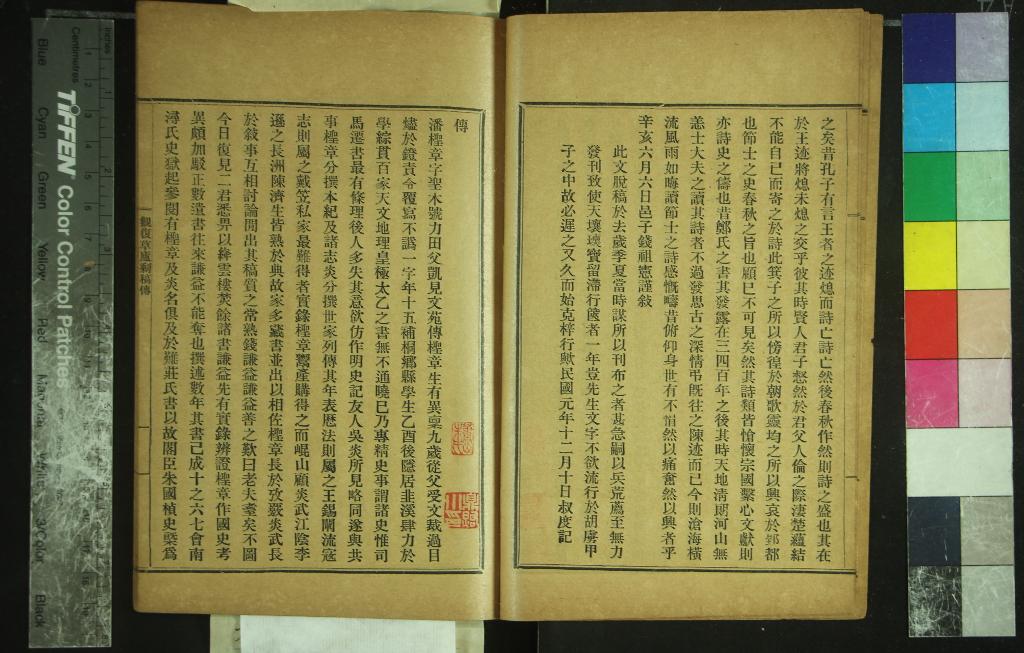 之矣昔孔子有言王者之迹熄而詩亡詩亡然後春秋作然則詩之盛也其在
於王迹將熄未熄之交乎彼其時賢人君子愁然於君父人倫之際淒楚蘊結
不能自已而寄之於詩此箕子之所以傍徨於朝歌靈均之所以興哀於郢都
也節士之史春秋之旨也顯巳不可見矣然其詩類皆愴懷宗國繫心文獻則
亦詩史之儔也昔鄭氏之書其發露在三四百年之後其時天地清朗河山無
恙士大夫之讀其詩者不過發思古之深情弔既往之陳迹而已今則滄海橫
流風雨如晦讀節士之詩感慨疇昔俯仰身世有不愴然以痛奮然以興者乎
辛亥六月六日邑子錢祖憲謹敍
此文脫稿於去歲季夏當時謀所以刊布之者甚急嗣以兵荒薦至無力
發刊致使天壤瓌寶留滯行篋者一年豈先生文字不欲流行於胡虜甲
子之中故必遲之又久而始克梓行歟民國元年十二月十日叔度記
傳
潘檉章字聖木號力田父凱見文苑傳檉章生有異稟九歲從父受文裁過目
燼於鐙責令覆寫不譌一字年十五補桐鄉縣學生乙酉後隱居韭溪肆力於
學綜貫百家天文地理皇極太乙之書無不通曉已乃專精史事謂諸史惟司
馬遷書最有條理後人多失其意欲仿作明史記友人吳炎所見略同遂與共
事檉章分撰本紀及諸志炎分撰世家列傳其年表厯法則屬之王錫闡流寇
志則屬之戴笠私家最難得者實錄檉章鬻產購得之而崐山顧炎武江陰李
遜之長洲陳濟生皆熟於典故家多藏書並出以相佐檉章長於攷覈炎武長
於敍事互相討論閒出其稿質之常熟錢謙益謙益善之歎曰老夫耄矣不圖
今日復見二君悉畀以絳雲樓焚餘諸書謙益先有實錄辨證檉章作國史考
異頗加駁正數遺書往來謙益不能奪也撰述數年其書已成十之六七會南
潯氏史獄起參閱有檉章及炎名俱及於難莊氏書以故閣臣朱國楨史槩爲
觀復草廬剩稿傳
Inches
Centimetres
TIFFEN Color Control Patches
Blue
Cyan
Green
Yellow
Red
Magenta
White
3/Color
Black